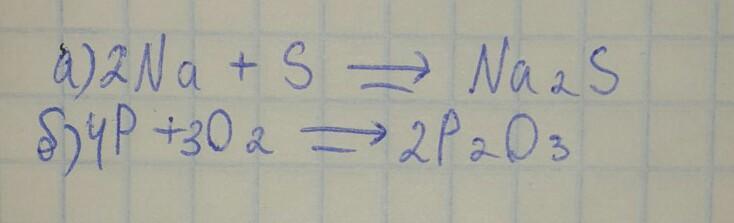 а) 2Na + S → Na₂S
б) 4P + 3O₂ → 2P₂O₃